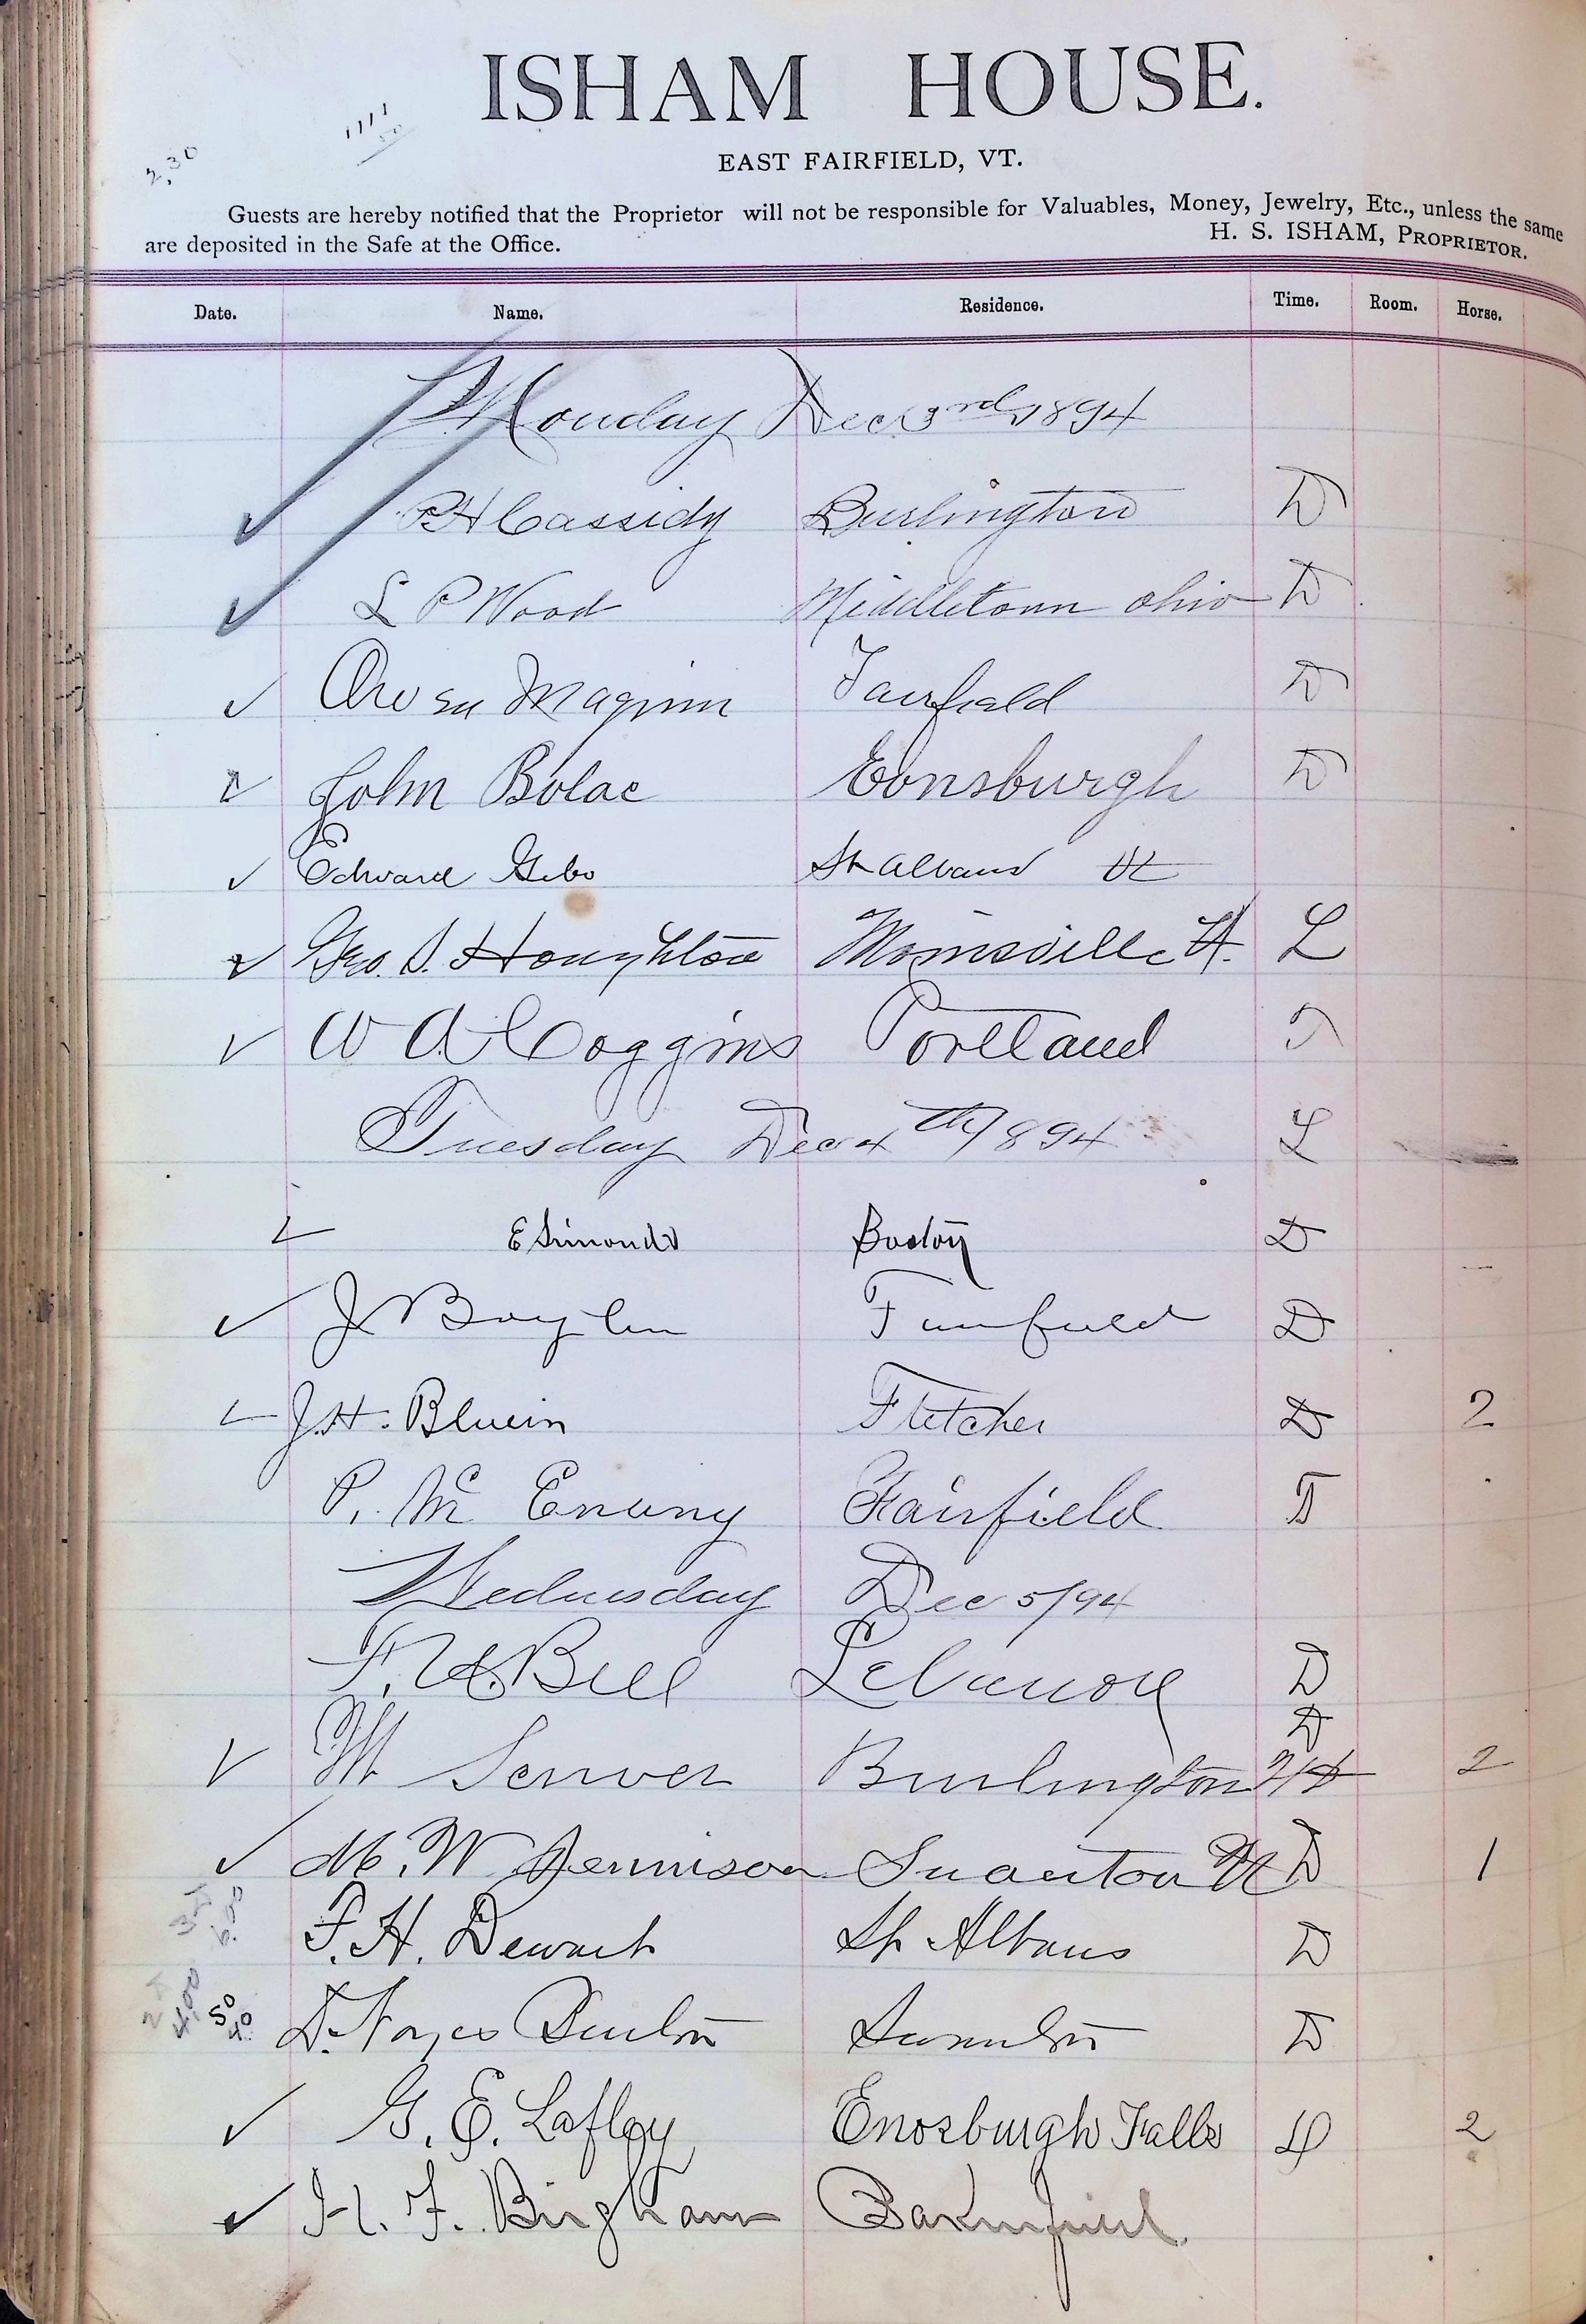 2.30
1111
50
ISHAM HOUSE.
EAST FAIRFIELD, VT.
Guests are hereby notified that the Proprietor will not be responsible for Valuables, Money, Jewelry, Etc., unless the same
are deposited in the Safe at the Office.
H. S. ISHAM, PROPRIETOR.
Date. Name. Residence. Time. Room. Horse.
Monday Dec 3rd 1894
P H Cassidy Burlington D
L P Wood Middletown Ohio D
Owen Maginn Fairfield D
John Bolac Eonsburgh D
Edward Gebo St Albans Vt
Geo. S. Houghton Morrisville Vt. L
W A Coggins Portland T
Tuesday Dec 4th 1894 L
E Simonds Boston D
J Boylan Fairfield D
J. H. Bluein Fletcher D 2
P. Mc Enany Fairfield T
Wednesday Dec 5/94
F. Bell Lebanon D
D
M Senver Burlington 2
M. W Dennison Swanton Vt D 1
F. H. Dewart St Albans D
4.00 50
40
D. Noyes Burton Swanton D
G. E. Laflay Enosburgh Falls 2
H. F. Bingham Bakersfield